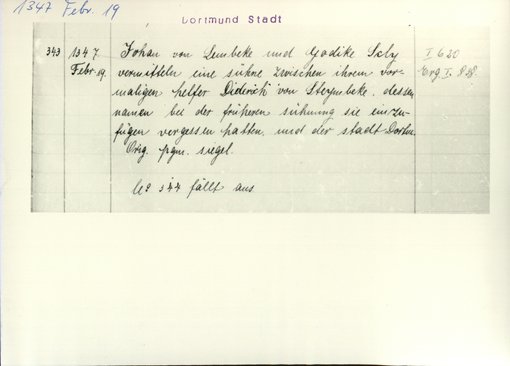 1347 Febr. 19
Dortmund Stadt
343 1347 Johan von Lembeke und Godike Sely I 620
Febr. 19. vermitteln eine sühne zwischen ihrem vor- Erg I. 828.
maligen helfer Diderich von Steynbeke, dessen
namen bei der früheren sühnung sie einzu-
fügen vergessen hatten und der stadt Dortm.
Orig. pgm. siegel.
No 344 fällt aus